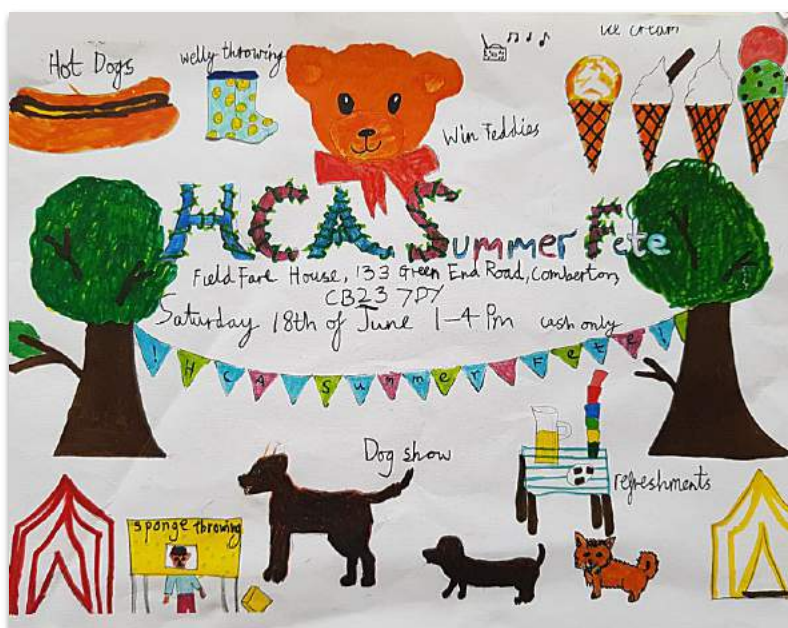 ice cream
Hot Dogs
welly throwing
Win Teddies
HCA Summer Fete
Field Fare House, 133 Green End Road, Comberton,
CB23 7DY
Saturday 18th of June 1-4 Pm cash only
! HCA Summer Fete!
Dog show
refreshments
sponge throwing